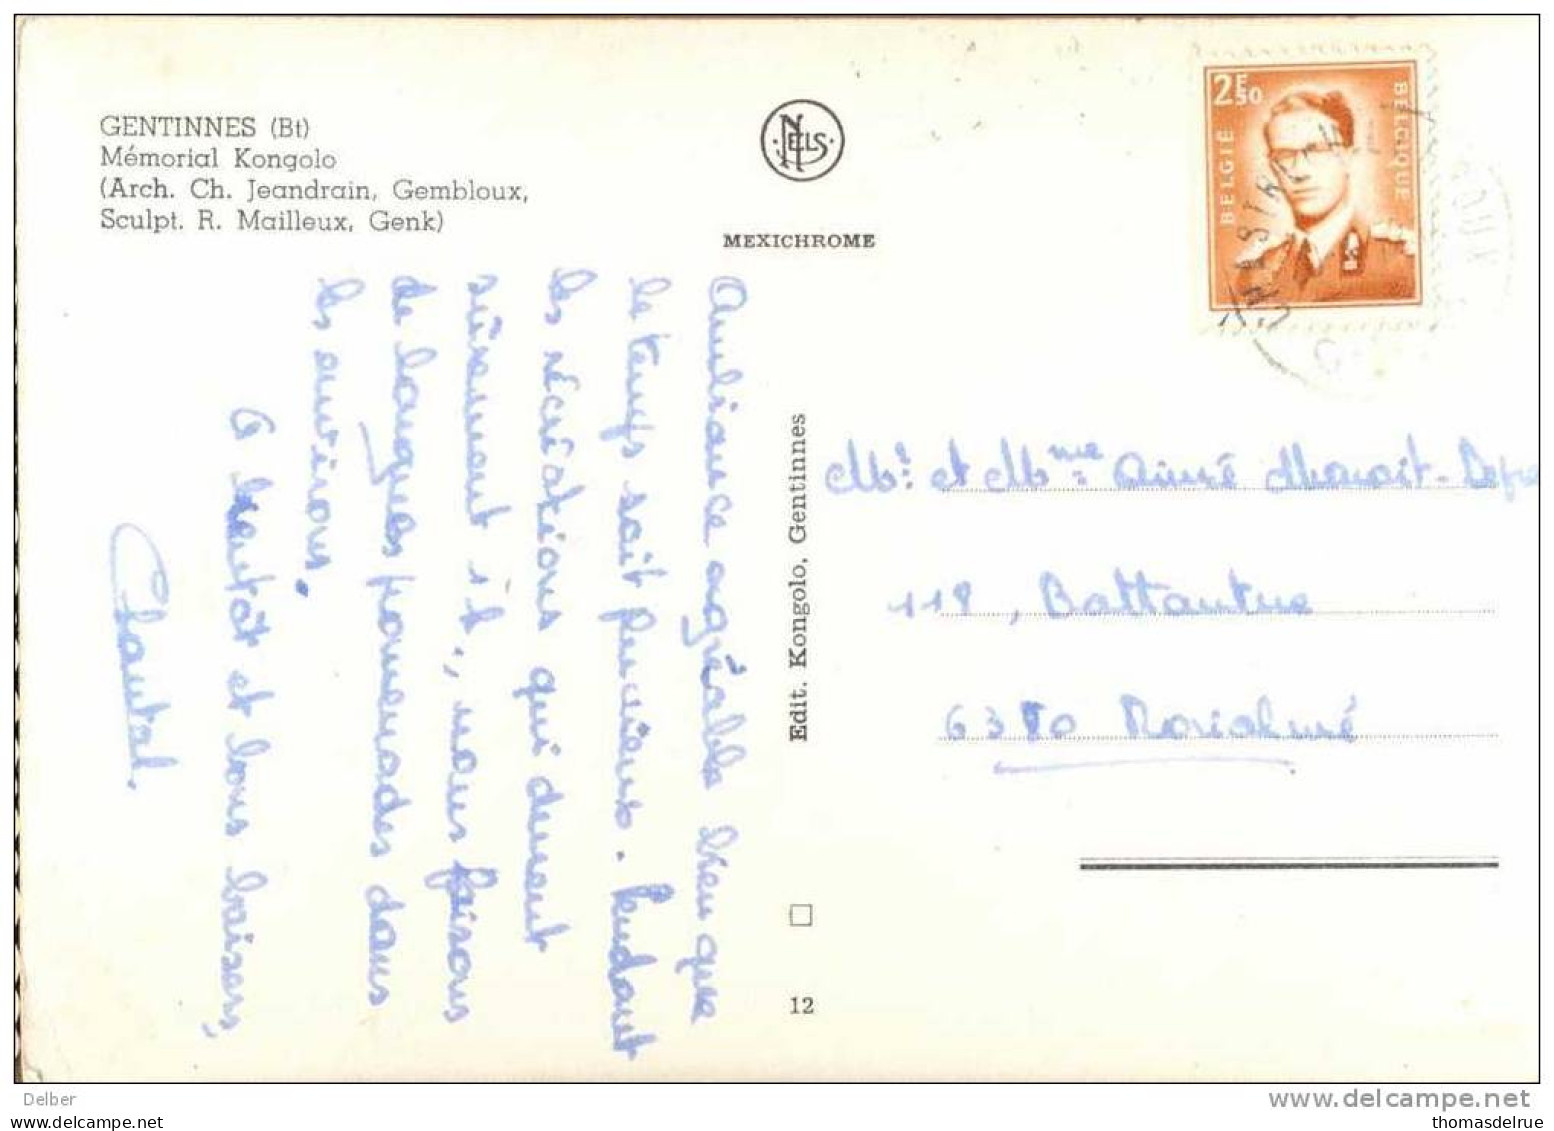 GENTINNES (Bt)
Mémorial Kongolo
(Arch. Ch. Jeandrain, Gembloux,
Sculpt. R. Mailleux, Genk)
NELS
MEXICHROME
2F50
BELGIË
BELGIQUE
CHASTRE
Ambiance agréable bien que
le temps soit pluvieux. Pendant
les récréations qui durent
sûrement 1h., nous faisons
de longues promenades dans
les environs.
A bientôt et bons baisers,
Chantal.
Edit. Kongolo, Gentinnes
12
Mr. et Mme Aimé
118,
63 0 Morialmé
Delber
www.delcampe.net
thomasdelrue